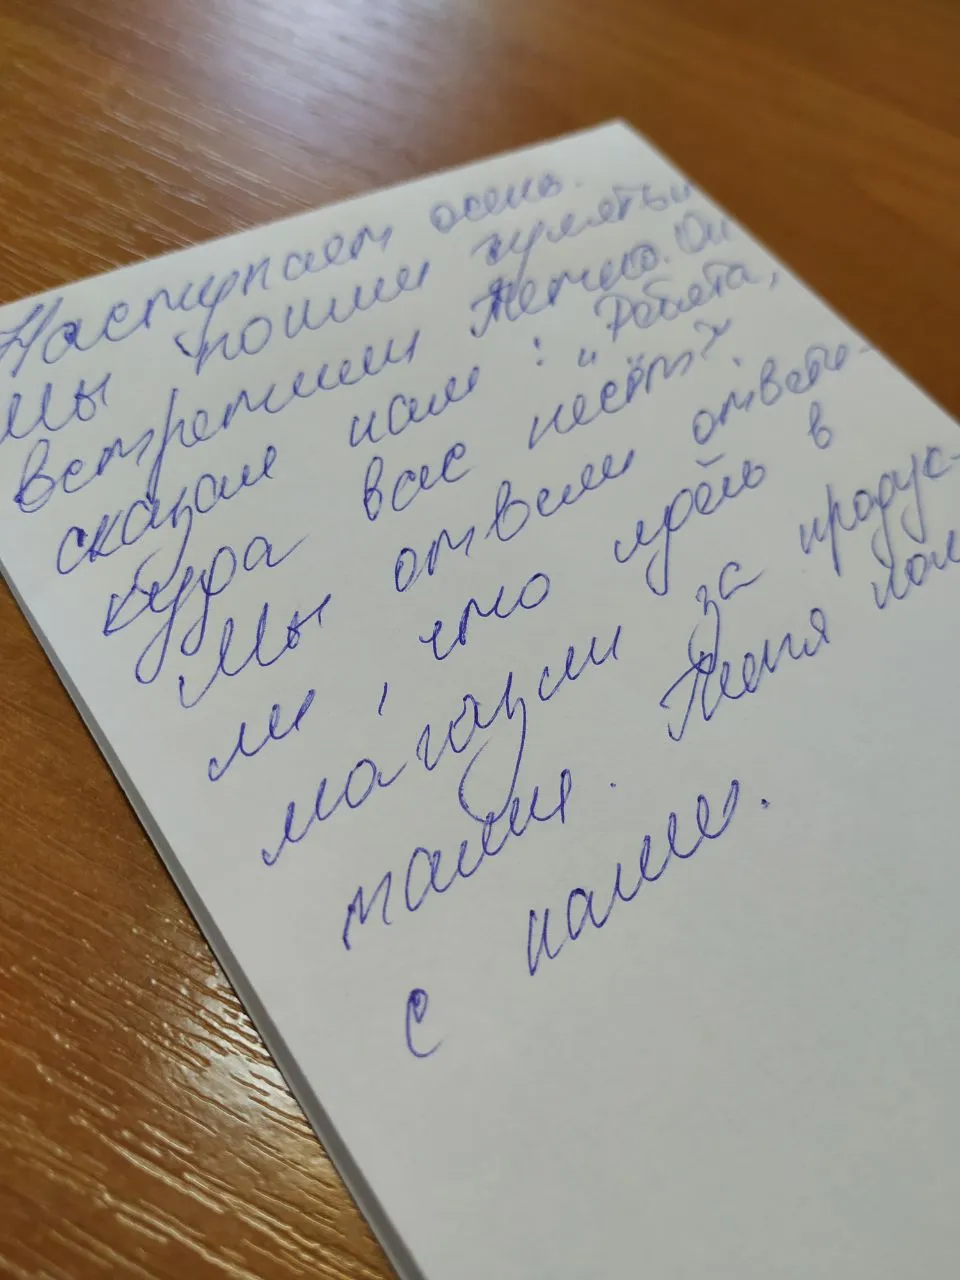 Наступает осень.
Мы пошли гулять и
встретили Петю. Он
сказал нам: "Ребята,
куда вас несёт?
Мы ответили ответи-
ли, что идём в
магазин за продук-
тами. Петя пошёл
с нами.